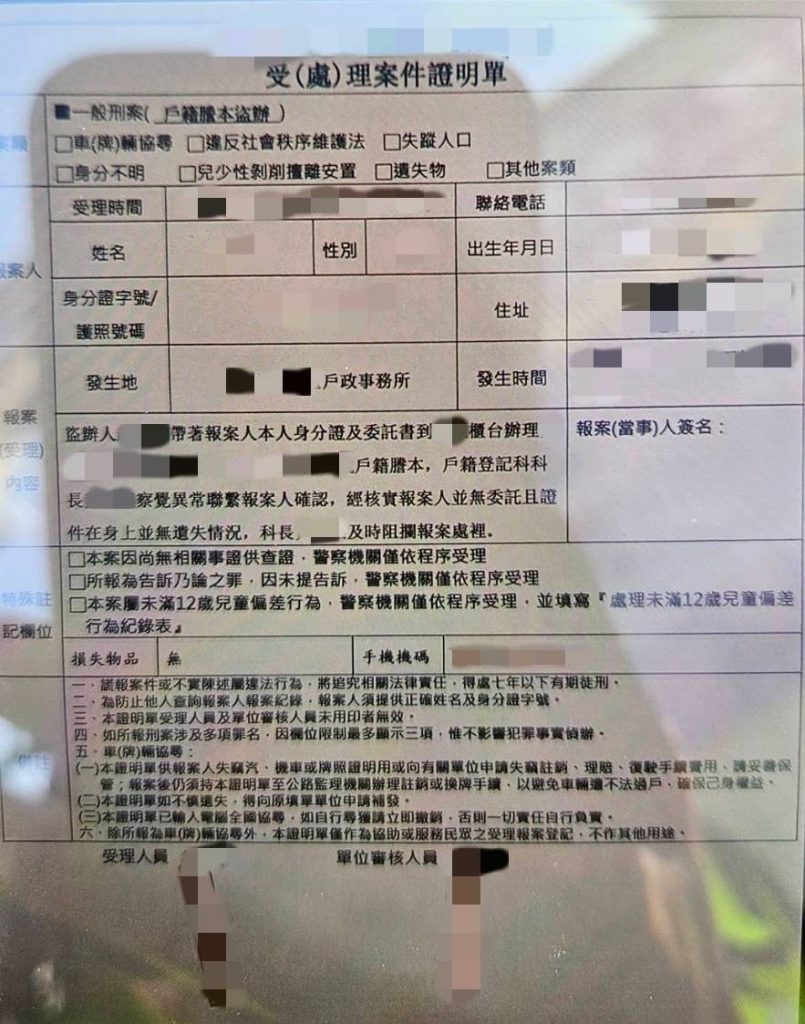 受(處)理案件證明單
案類
■一般刑案( 戶籍謄本盜辦 )
□車(牌)輛協尋 □違反社會秩序維護法 □失蹤人口
□身分不明 □兒少性剝削擅離安置 □遺失物 □其他案類
報案人
受理時間 聯絡電話
姓名 性別 出生年月日
身分證字號/
護照號碼
住址
發生地 戶政事務所 發生時間
報案
(受理)
內容
盜辦人 帶著報案人本人身分證及委託書到 櫃台辦理
戶籍謄本，戶籍登記科科
長 察覺異常聯繫報案人確認，經核實報案人並無委託且證
件在身上並無遺失情況，科長 及時阻攔報案處裡。
報案(當事)人簽名：
特殊註
記欄位
□本案因尚無相關事證供查證，警察機關僅依程序受理
□所報為告訴乃論之罪，因未提告訴，警察機關僅依程序受理
□本案屬未滿12歲兒童偏差行為，警察機關僅依程序受理，並填寫『處理未滿12歲兒童偏差
行為紀錄表』
損失物品 無 手機機碼
備註
一、謊報案件或不實陳述屬違法行為，將追究相關法律責任，得處七年以下有期徒刑。
二、為防止他人查詢報案人報案紀錄，報案人須提供正確姓名及身分證字號。
三、本證明單受理人員及單位審核人員未用印者無效。
四、如所報刑案涉及多項罪名，因欄位限制最多顯示三項，惟不影響犯罪事實偵辦。
五、車(牌)輛協尋：
(一)本證明單供報案人失竊汽、機車或牌照證明用或向有關單位申請失竊註銷、理賠、復駛手續費用，請妥善保
管；報案後仍須持本證明單至公路監理機關辦理註銷或換牌手續，以避免車輛遭不法過戶，確保己身權益。
(二)本證明單如不慎遺失，得向原填單單位申請補發。
(三)本證明單已輸入電腦全國協尋，如自行尋獲請立即撤銷，否則一切責任自行負責。
六、除所報為車(牌)輛協尋外，本證明單僅作為協助或服務民眾之受理報案登記，不作其他用途。
受理人員 單位審核人員